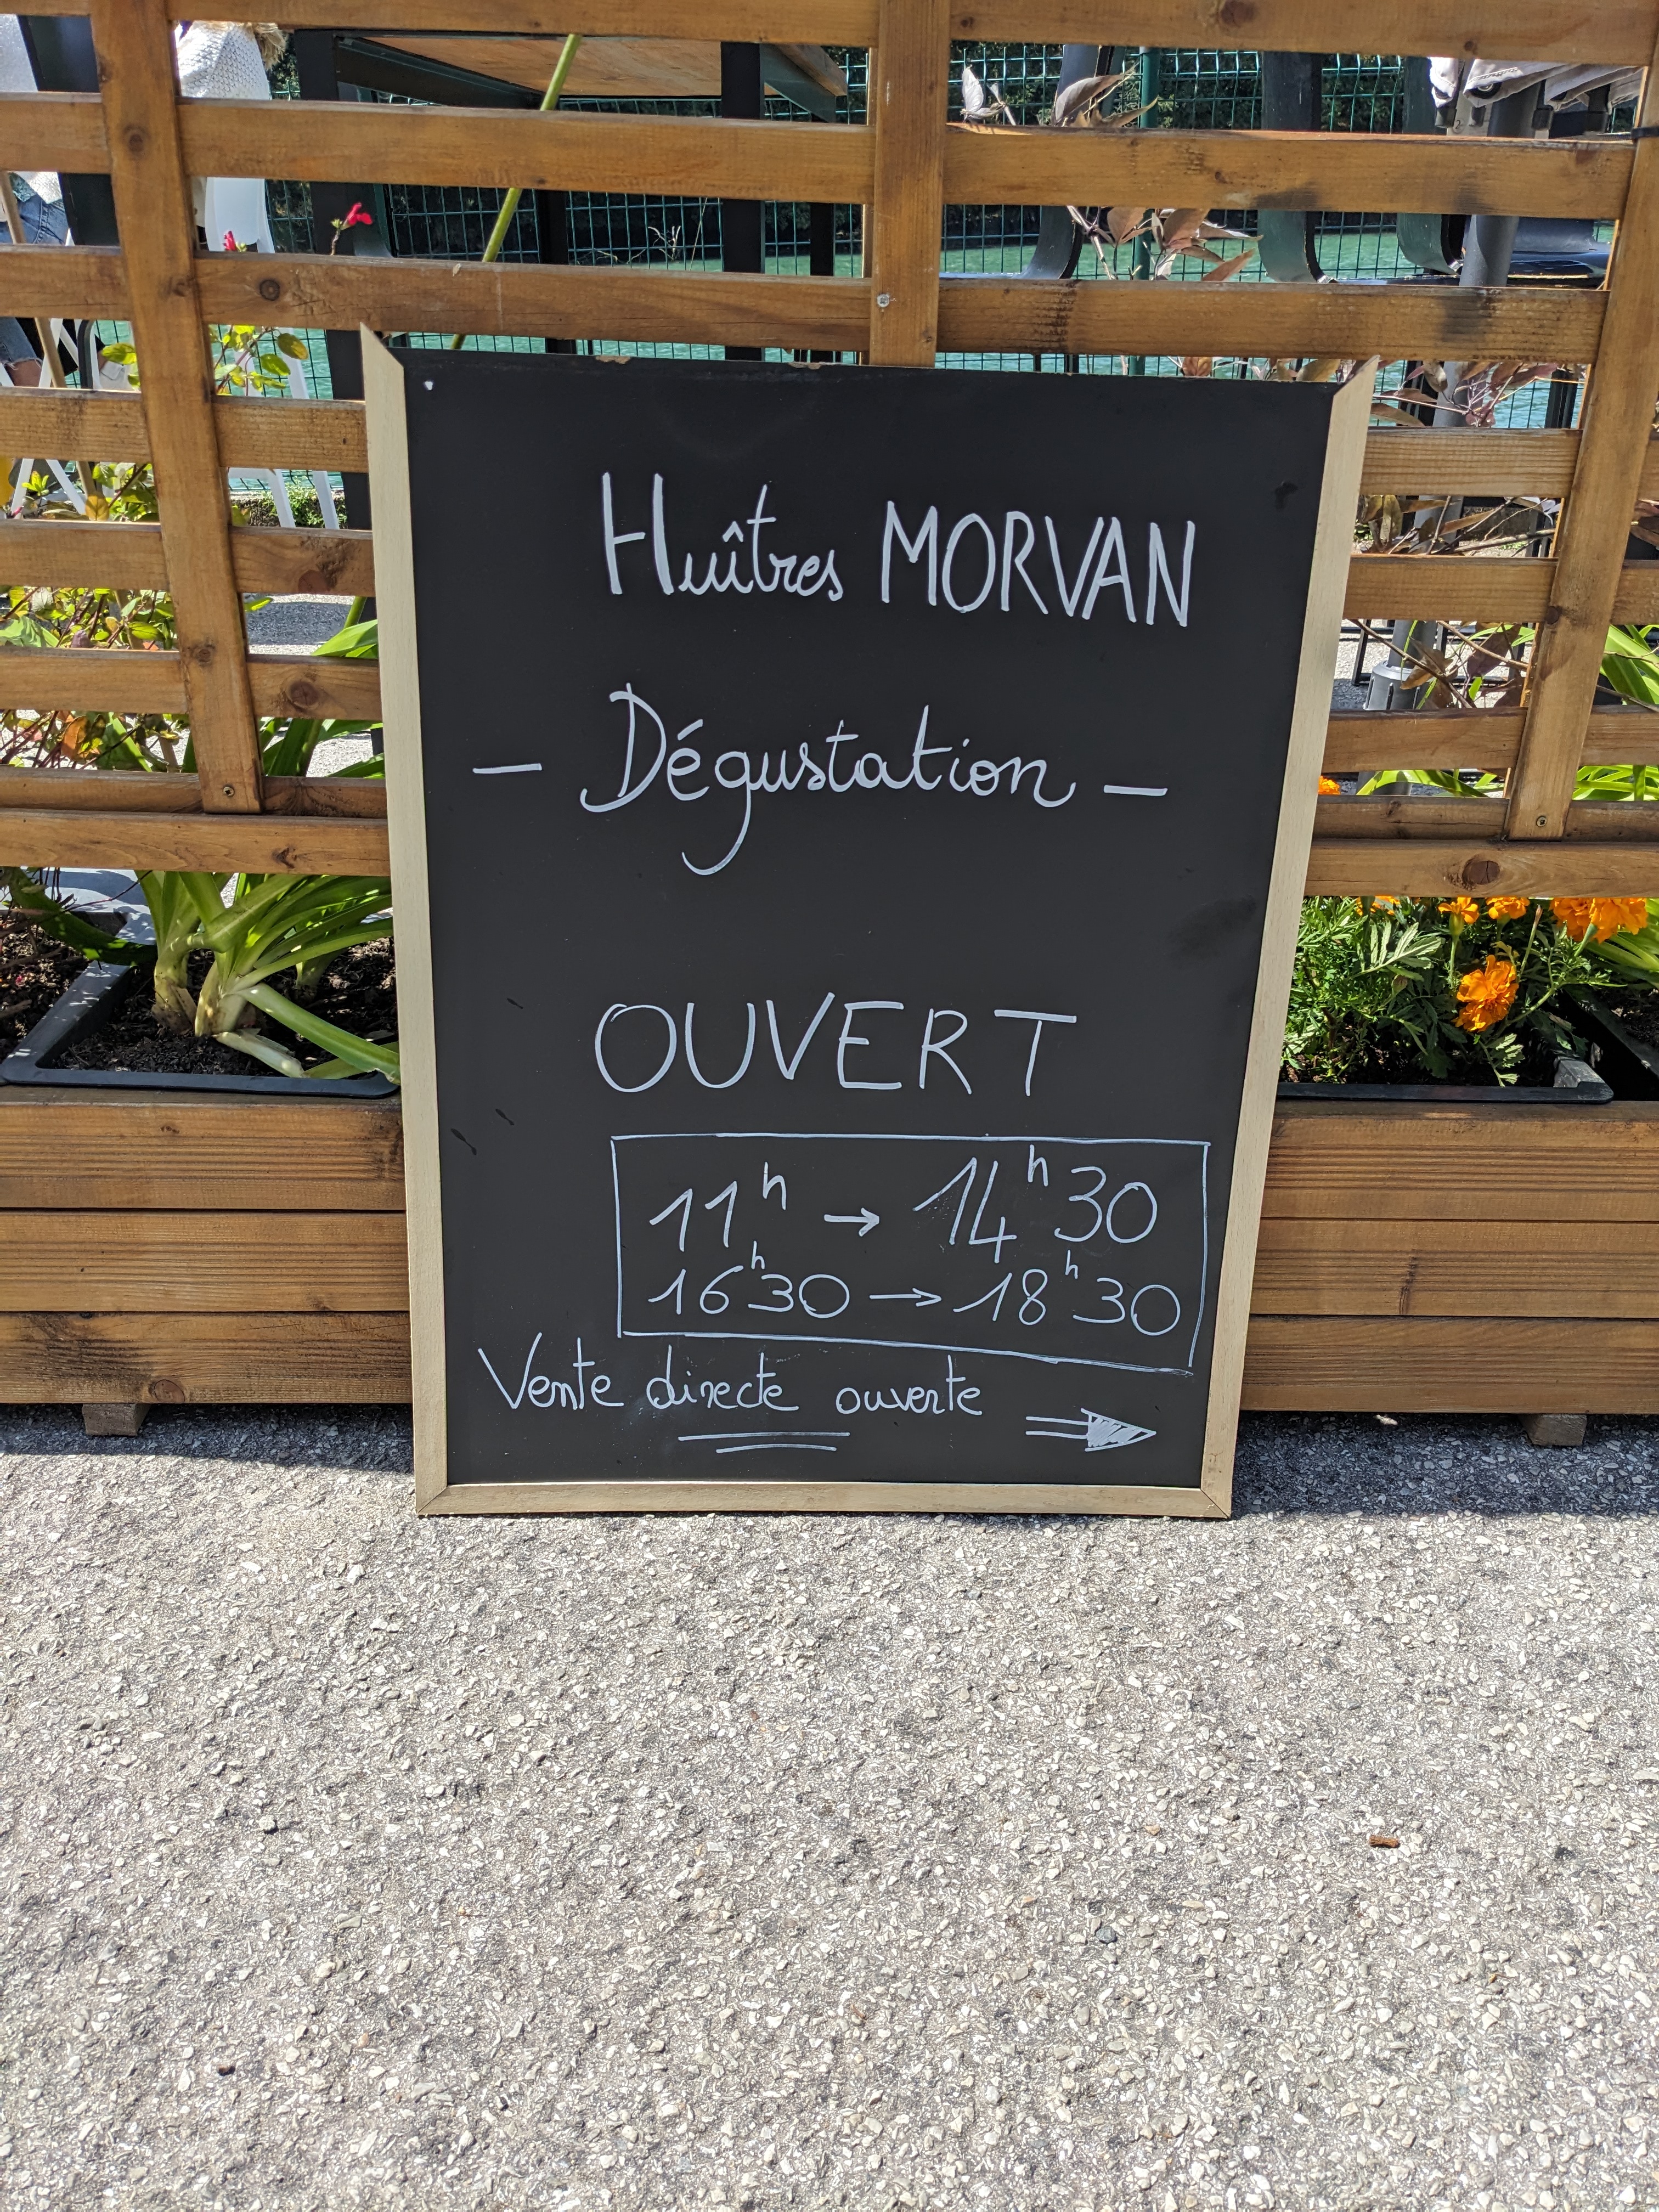 Huîtres MORVAN
- Dégustation -
OUVERT
11h → 14h30
16h30 → 18h30
Vente directe ouverte ⇒